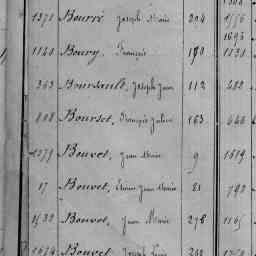 1371 Bourré Joseph Marie 204 1556
1140 Boury, François 190 1130
363 Boursault, Joseph Jean 112 482
808 Bourset, François Julien 163 646
Bouvet, Jean Marie 9 1619
17 Bouvet, Etienne Jean Marie 81 792
1533 Bouvet, Jean Marie 278
1674 Bouvet, Joseph